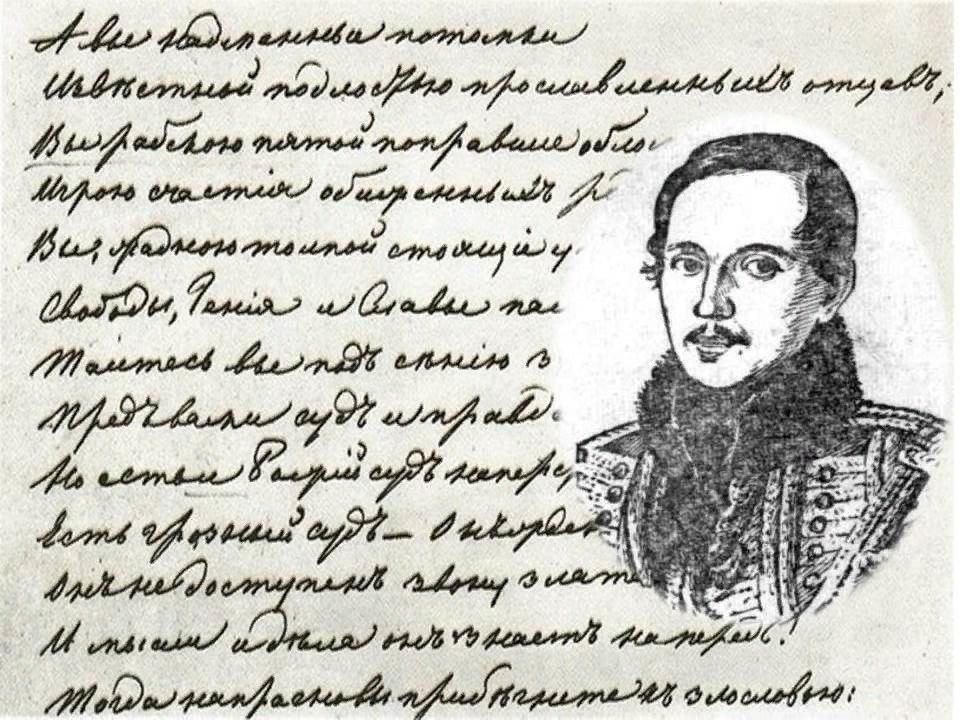 А вы надменныи потомки
Извѣстной подлостью прославленныхъ отцевъ,
Вы рабскою пятой поправшие обло
Игрою счастія обиженныхъ
Вы, жадною толпой стоящіе у
Свободы, Генія и Славы пал
Таитесь вы подъ сѣнію з
Предъ вами судъ и правд
Но есть и Божій судъ напер
Есть грозный судъ — Онъ ждет
Онъ не доступенъ звону злат
И мысли и дѣла онъ знаетъ напередъ!
Тогда напрасно вы прибѣгнете къ злословью: